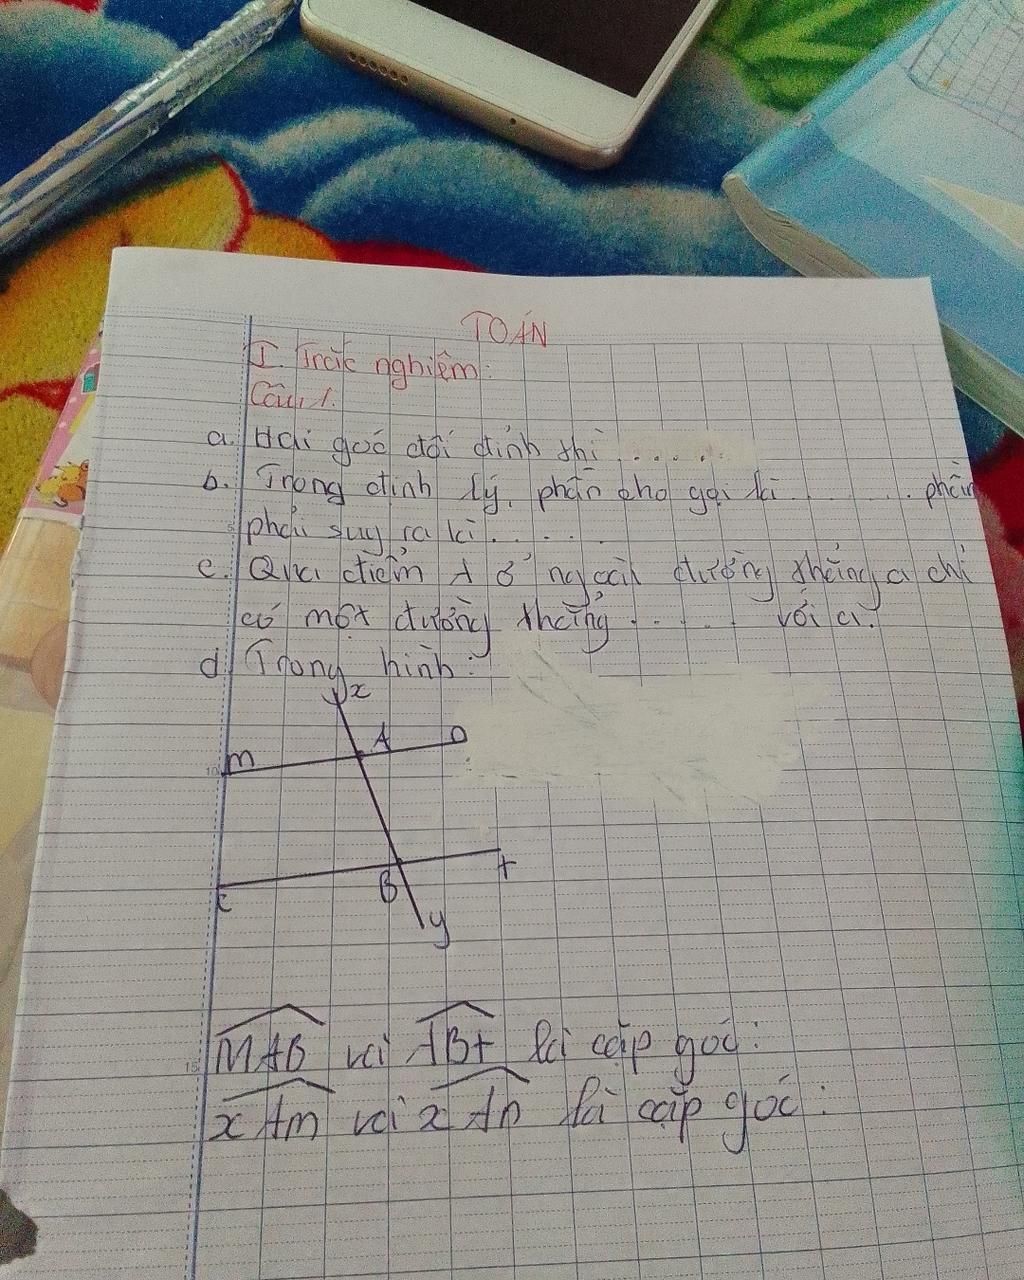 TOÁN
I. Trắc nghiệm:
Câu 1.
a. Hai góc đối đỉnh thì ......
b. Trong định lý, phần cho gọi là ....... phần
5
phải suy ra là .....
c. Qua điểm A ở ngoài đường thẳng a chỉ
có một đường thẳng ..... với a.
d. Trong hình:
x
A
n
m
10
B
t
z
y
MAB và ABt là cặp góc:
15
xAm và xAn là cặp góc: